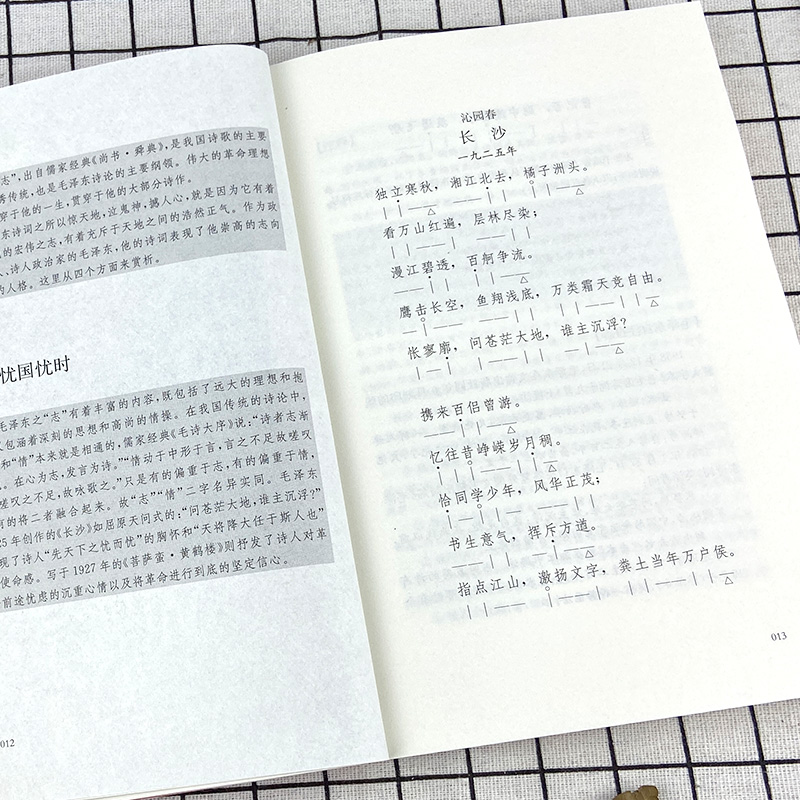 志”,出自儒家经典《尚书·舜典》,是我国诗歌的主要
秀传统,也是毛泽东诗论的主要纲领。伟大的革命理想
穿于他的一生,贯穿于他的大部分诗作。
东诗词之所以惊天地,泣鬼神,撼人心,就是因为它有着
的宏伟之志,有着充斥于天地之间的浩然正气。作为政
、诗人政治家的毛泽东,他的诗词表现了他崇高的志向
的人格。这里从四个方面来赏析。
忧国忧时
毛泽东之“志”有着丰富的内容,既包括了远大的理想和抱
又包涵着深刻的思想和高尚的情操。在我国传统的诗论中,
和“情”本来就是相通的,儒家经典《毛诗大序》说:“诗者志渐
。在心为志,发言为诗。”“情动于中形于言,言之不足故嗟叹
嗟叹之不足,故咏歌之。”只是有的偏重于志,有的偏重于情,
有的将二者融合起来。故“志”“情”二字名异实同。毛泽东
25年创作的《长沙》如屈原天问式的:“问苍茫大地,谁主沉浮?”
现了诗人“先天下之忧而忧”的胸怀和“天将降大任于斯人也”
使命感。写于1927年的《菩萨蛮·黄鹤楼》则抒发了诗人对革
前途忧虑的沉重心情以及将革命进行到底的坚定信心。
012
沁园春
长 沙
一九二五年
独立寒秋,湘江北去,橘子洲头。
看万山红遍,层林尽染;
漫江碧透,百舸争流。
鹰击长空,鱼翔浅底,万类霜天竞自由。
怅寥廓,问苍茫大地,谁主沉浮?
携来百侣曾游。
忆往昔峥嵘岁月稠。
恰同学少年,风华正茂;
书生意气,挥斥方遒。
指点江山,激扬文字,粪土当年万户侯。
013